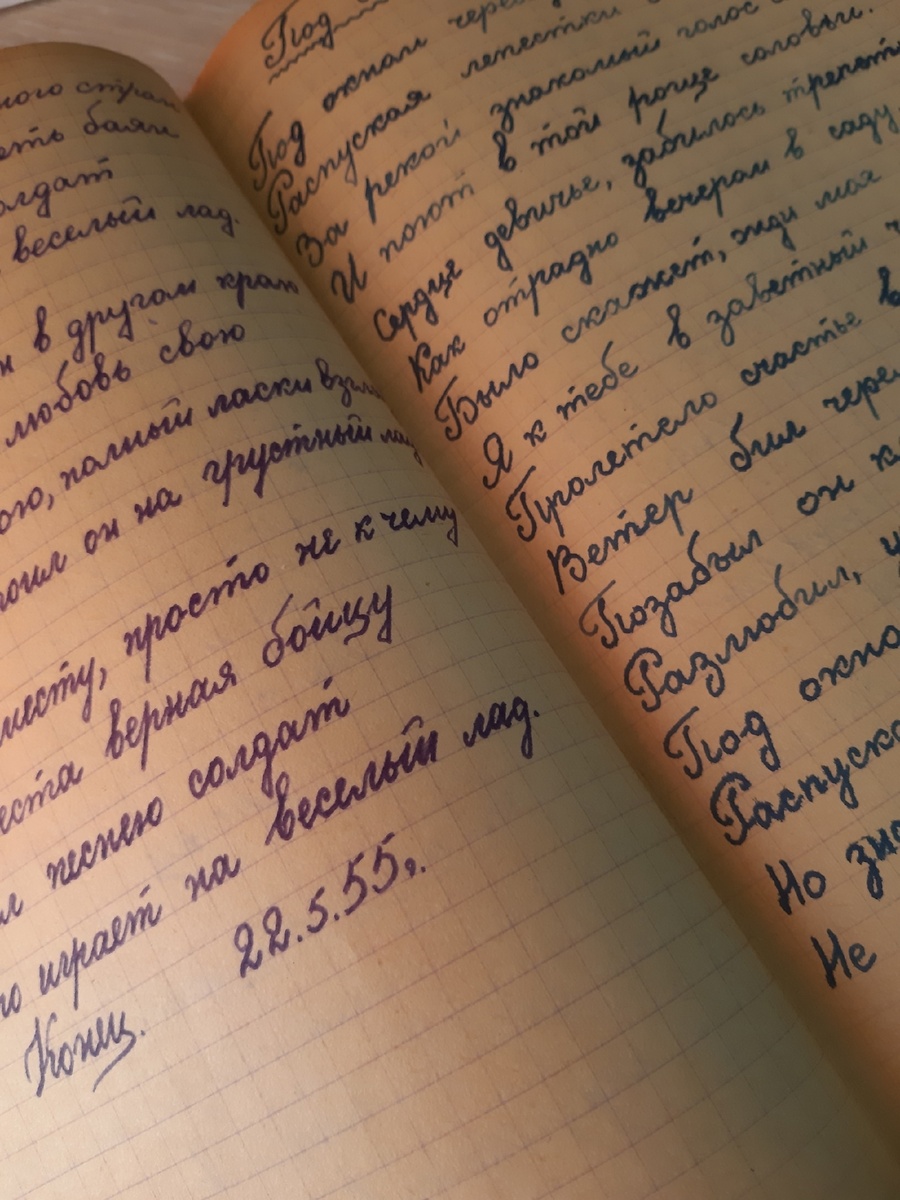 ного стран
еть баян
солдат
веселый лад.
н в другом краю
любовь свою
ою, полный ласки взгл
роил он на грустный лад
месту, просто не к чему
еста верная бойцу
л песнею солдат
го играет на веселый лад.
22.5.55г.
Конец.
Под
Под окном черё
Распуская лепестки
За рекой знакомый голос
И поют в той роще соловьи.
Сердце девичье, забилось трепетн
Как отрадно вечером в саду,
Было скажет, жди моя
Я к тебе в заветный ч
Пролетело счастье в
Ветер бил чере
Позабыл он к
Разлюбил, у
Под окно
Распуска
Но зна
Не